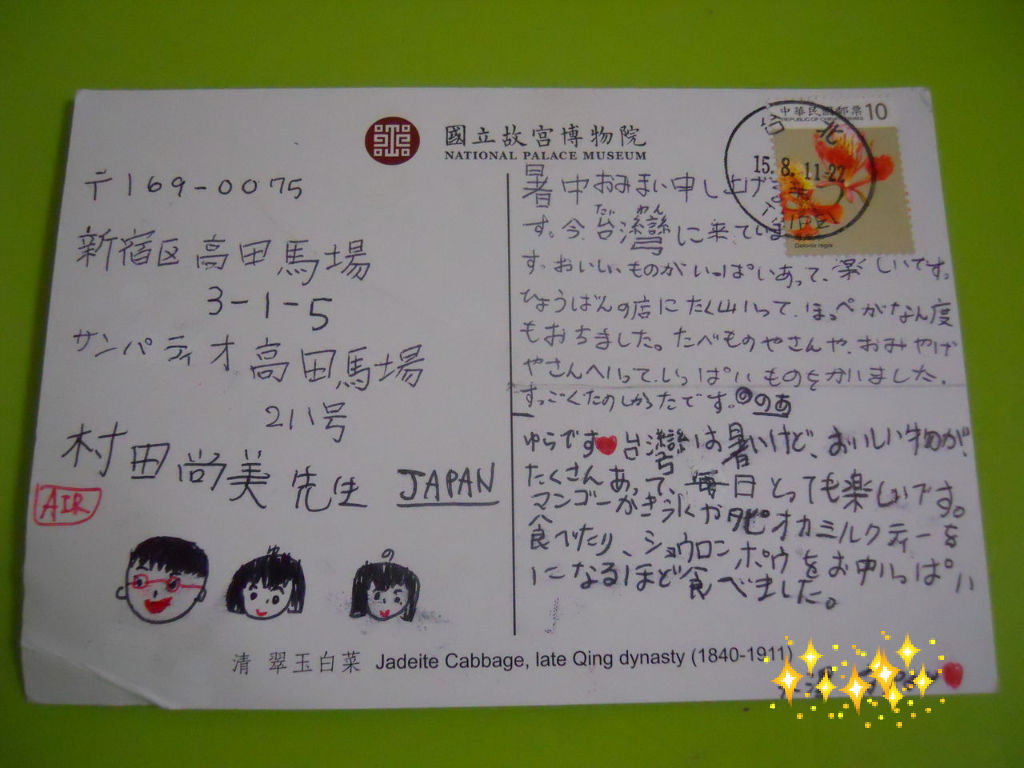 國立故宮博物院
NATIONAL PALACE MUSEUM
中華民國郵票 10
REPUBLIC OF CHINA
台北
15.8.11-22
TAIPEI
Delonix regia
〒169-0075
新宿区高田馬場
3-1-5
サンパティオ高田馬場
211号
村田尚美先生 JAPAN
AIR
暑中おみまい申し上げま
す。今、台灣に来ていま
たい わん
す。おいしいものがいっぱいあって、楽しいです。
ひょうばんの店にたく山いって、ほっぺがなん度
もおちました。たべものやさんや、おみやげ
やさんへいって、いっぱいものをかいました。
すっごくたのしかったです。のあ
ゆらです 台灣は暑いけど、おいしい物が、
たくさんあって、毎日とっても楽しいです。
マンゴーかき氷やタピオカミルクティーを
食べたり、ショウロンポウをお中いっぱい
になるほど食べました。
清 翠玉白菜 Jadeite Cabbage, late Qing dynasty (1840-1911)